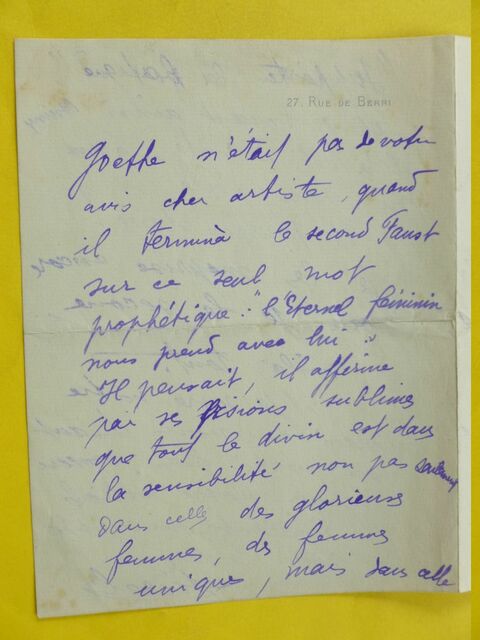 27, RUE DE BERRI
Goethe n'était pas de votre
avis cher artiste, quand
il termina le second Faust
sur ce seul mot
prophétique : "l'Eternel féminin
nous prend avec lui".
Il pensait, il affirme
par ses visions sublimes
que tout le divin est dans
la sensibilité non pas seulement
dans celle des glorieuses
femmes, des femmes
uniques, mais dans celle